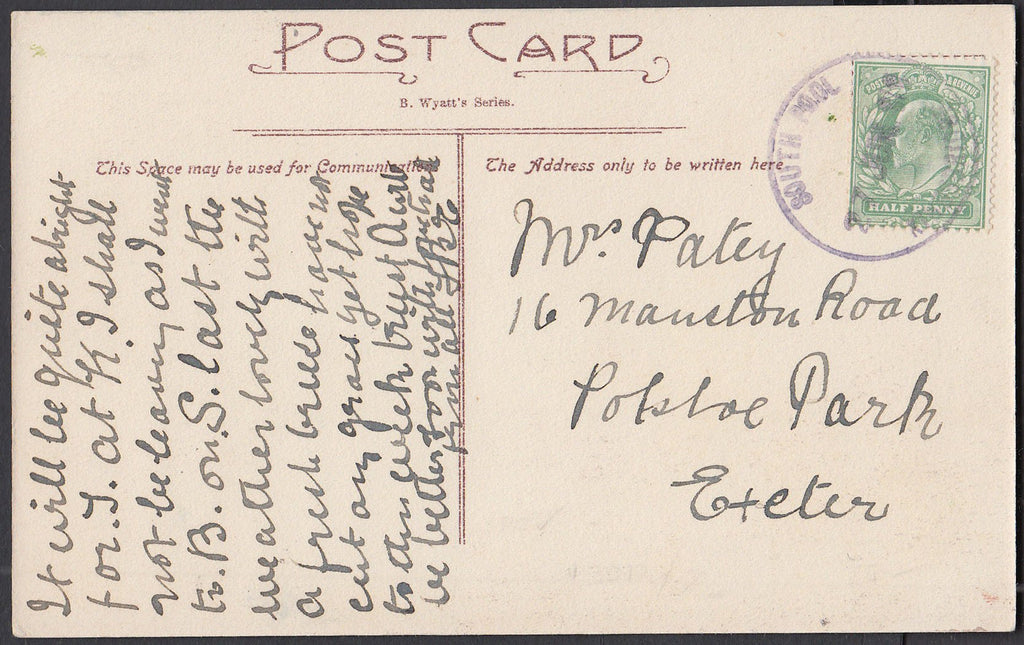 POST CARD
B. Wyatt's Series.
This Space may be used for Communication
The Address only to be written here
SOUTH
POSTAGE & REVENUE
HALF PENNY
Mrs Patey
16 Manston Road
Polsloe Park
Exeter
It will be quite alright
for J. at K. I shall
not be leaving as I went
to B. on S. last the
weather lovely with
a fresh breeze haven
cut any grass yet hope
to this week trust A will
be better soon with
from all